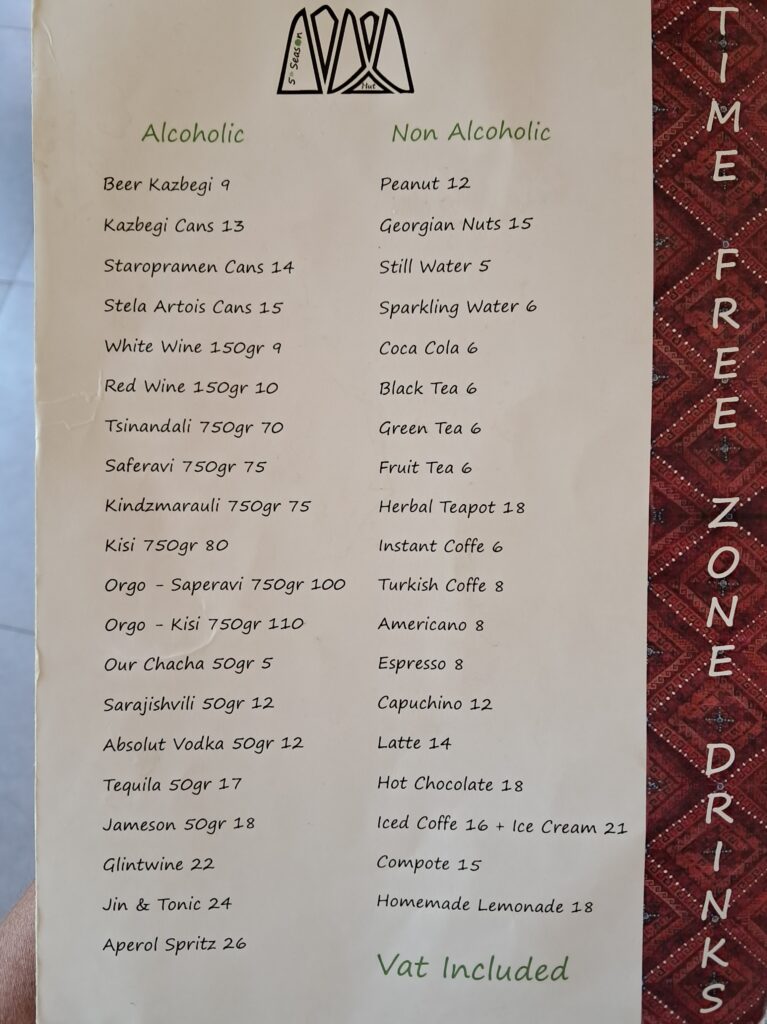 5th Season
Hut
Alcoholic
Beer Kazbegi 9
Kazbegi Cans 13
Staropramen Cans 14
Stela Artois Cans 15
White Wine 150gr 9
Red Wine 150gr 10
Tsinandali 750gr 70
Saferavi 750gr 75
Kindzmarauli 750gr 75
Kisi 750gr 80
Orgo - Saperavi 750gr 100
Orgo - Kisi 750gr 110
Our Chacha 50gr 5
Sarajishvili 50gr 12
Absolut Vodka 50gr 12
Tequila 50gr 17
Jameson 50gr 18
Glintwine 22
Jin & Tonic 24
Aperol Spritz 26
Non Alcoholic
Peanut 12
Georgian Nuts 15
Still Water 5
Sparkling Water 6
Coca Cola 6
Black Tea 6
Green Tea 6
Fruit Tea 6
Herbal Teapot 18
Instant Coffe 6
Turkish Coffe 8
Americano 8
Espresso 8
Capuchino 12
Latte 14
Hot Chocolate 18
Iced Coffe 16 + Ice Cream 21
Compote 15
Homemade Lemonade 18
Vat Included
TIME FREE ZONE DRINKS